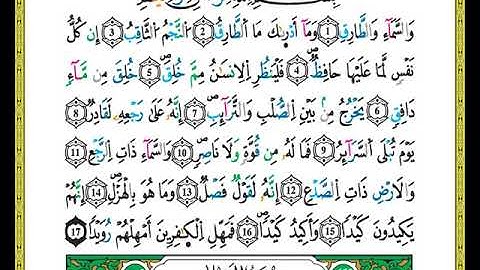 وَالسَّمَآءِ وَالطَّارِقِ 1 وَمَآ أَدْر۪ىٰكَ مَا اَلطَّارِقُ 2 اُلنَّجْمُ الثَّاقِبُ 3 إِن كُلُّ
نَفْسٍ لَمَا عَلَيْهَا حَافِظٌ 4 فَلْيَنظُرِ اِلِانسَٰنُ مِمَّ خُلِقَ 5 خُلِقَ مِن مَّآءٍ
دَافِقٍ 6 يَخْرُجُ مِنۢ بَيْنِ اِلصُّلْبِ وَالتَّرَآئِبِ 7 إِنَّهُۥ عَلَىٰ رَجْعِهِۦ لَقَادِرٌ 8
يَوْمَ تُبْلَى اَلسَّرَآئِرُ 9 فَمَا لَهُۥ مِن قُوَّةٍ وَلَا نَاصِرٍ 10 وَالسَّمَآءِ ذَاتِ اِلرَّجْعِ 11
وَالَارْضِ ذَاتِ اِلصَّدْعِ 12 إِنَّهُۥ لَقَوْلٌ فَصْلٌ 13 وَمَا هُوَ بِالْهَزْلِ 14 إِنَّهُمْ
يَكِيدُونَ كَيْدًا 15 وَأَكِيدُ كَيْدًا 16 فَمَهِّلِ اِلْكٰفِرِينَ أَمْهِلْهُمْ رُوَيْدًا 17